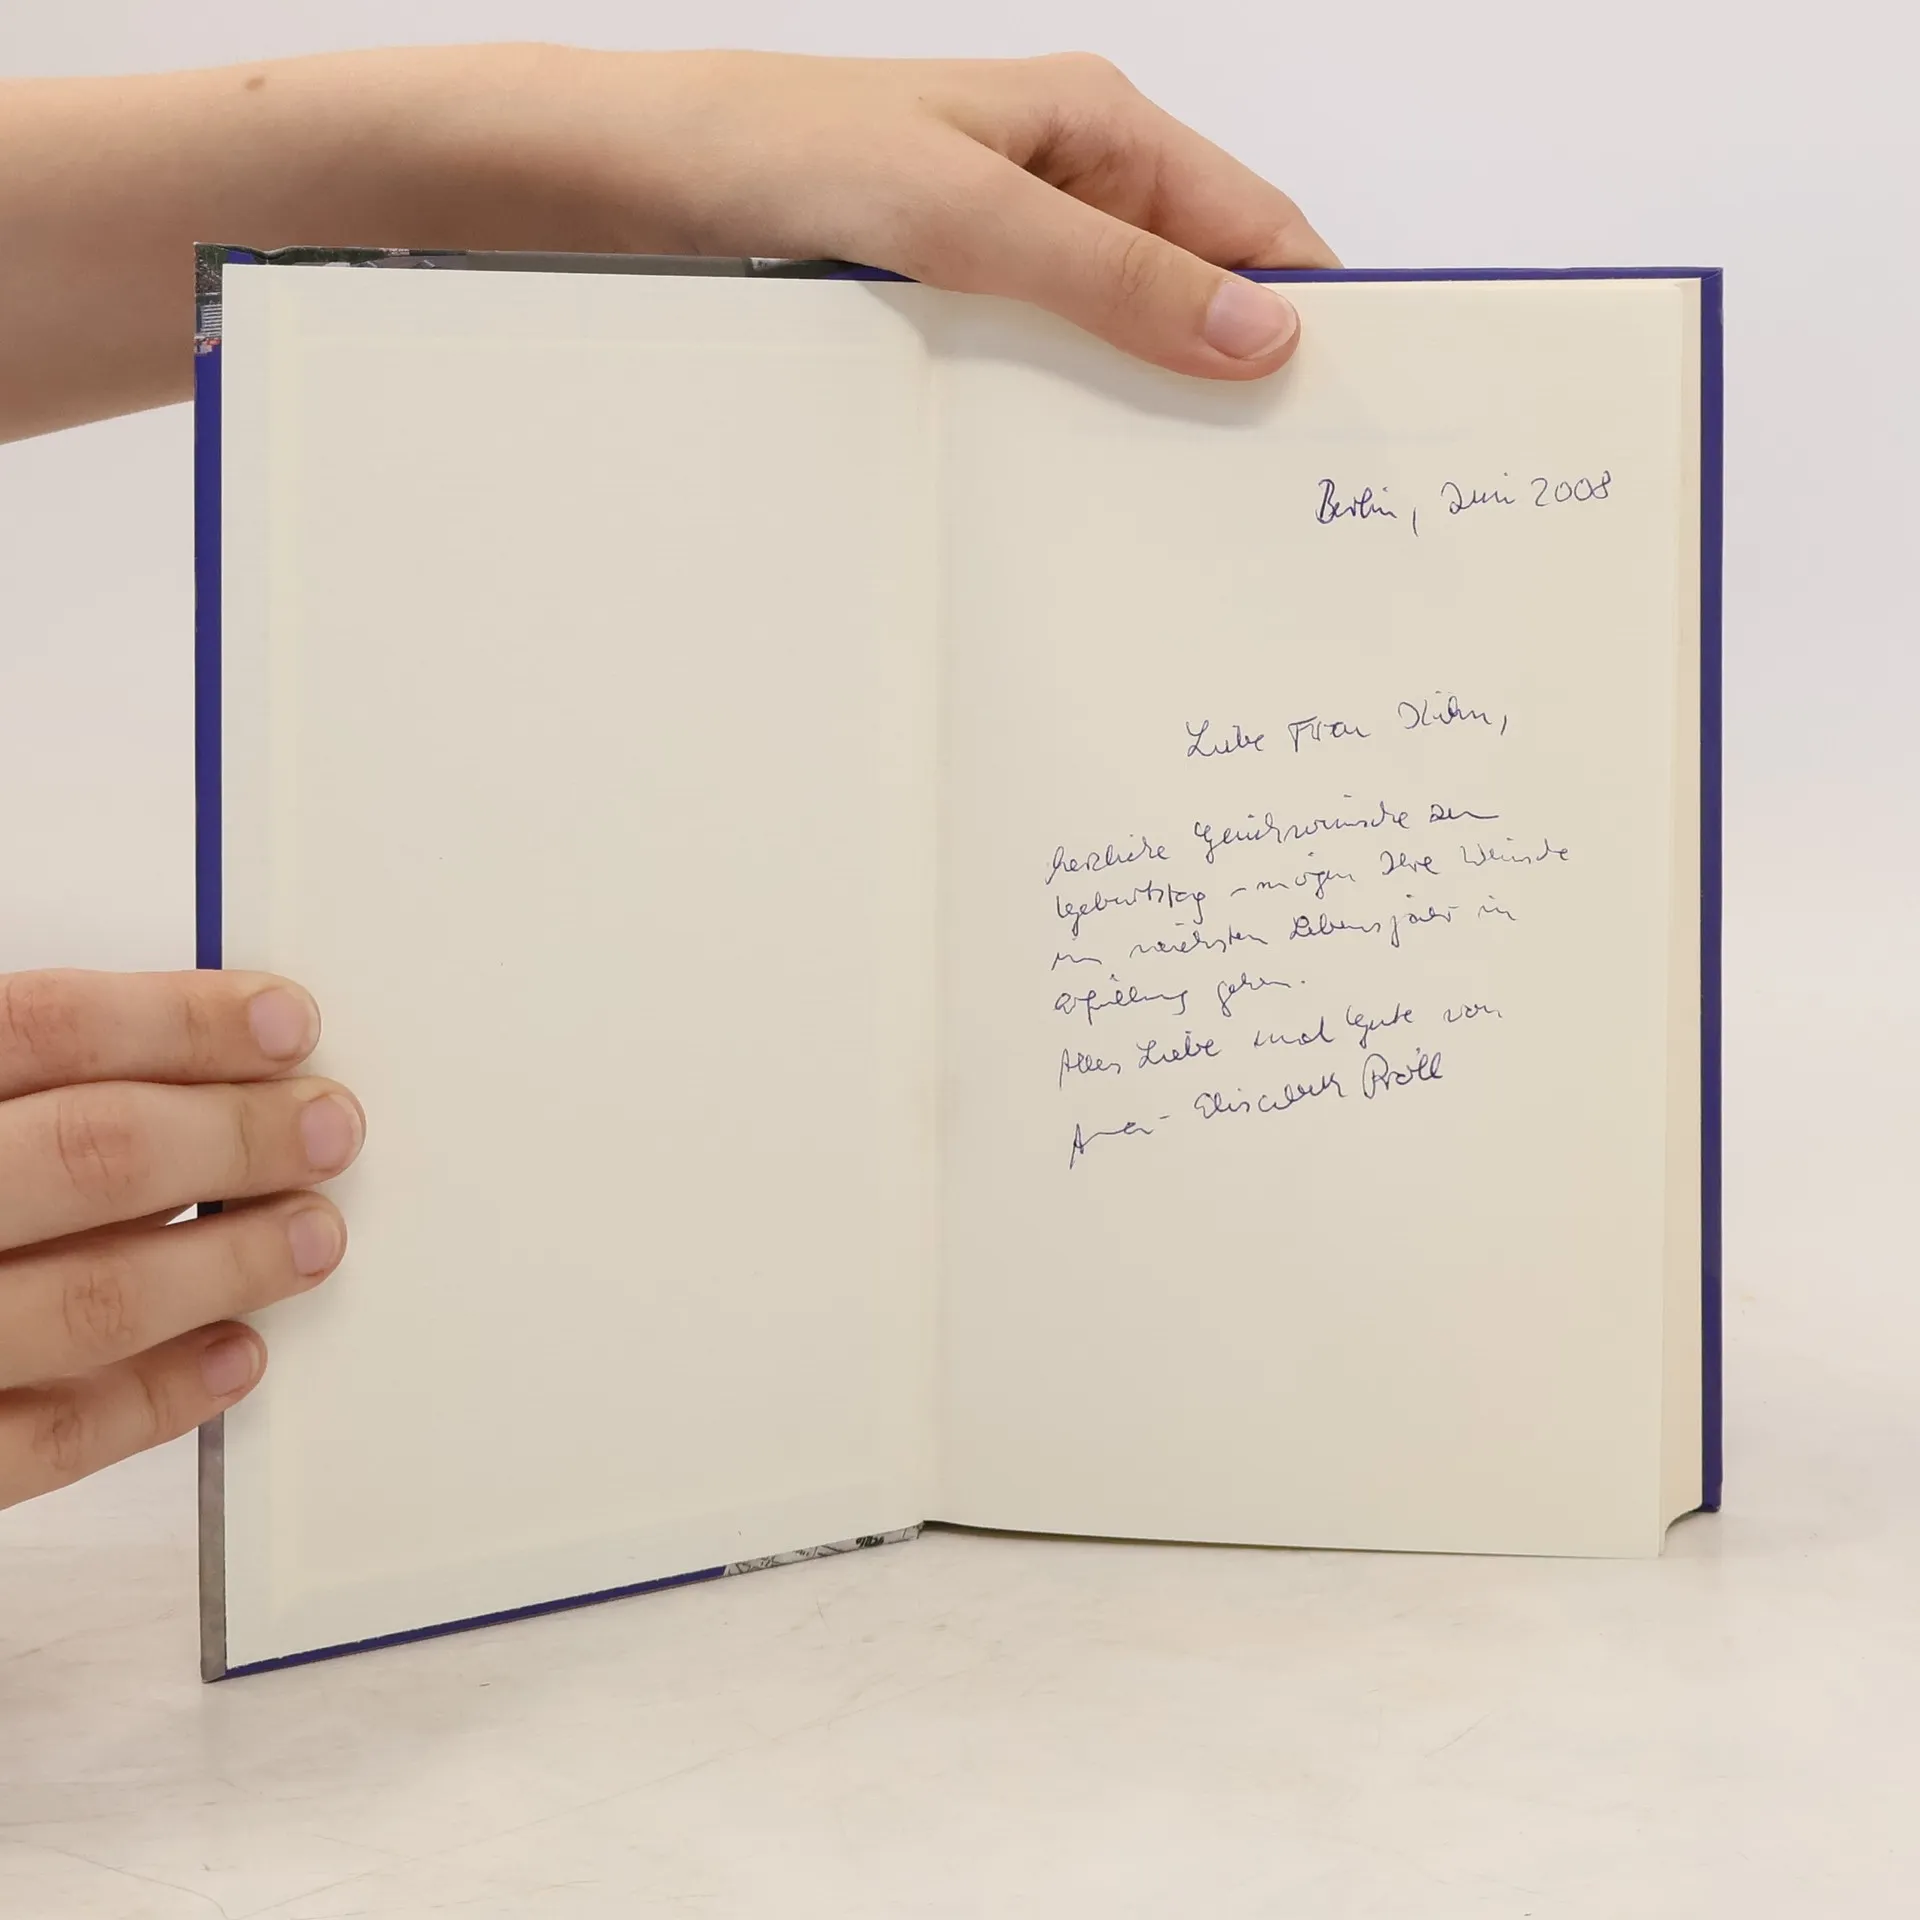 Berlin, Juni 2008
Liebe Frau Kühn,
herzliche Glückwünsche zum
Geburtstag - mögen Ihre Wünsche
im nächsten Lebensjahr in
Erfüllung gehen.
Alles Liebe und Gute von
Anna-Elisabeth Pröll